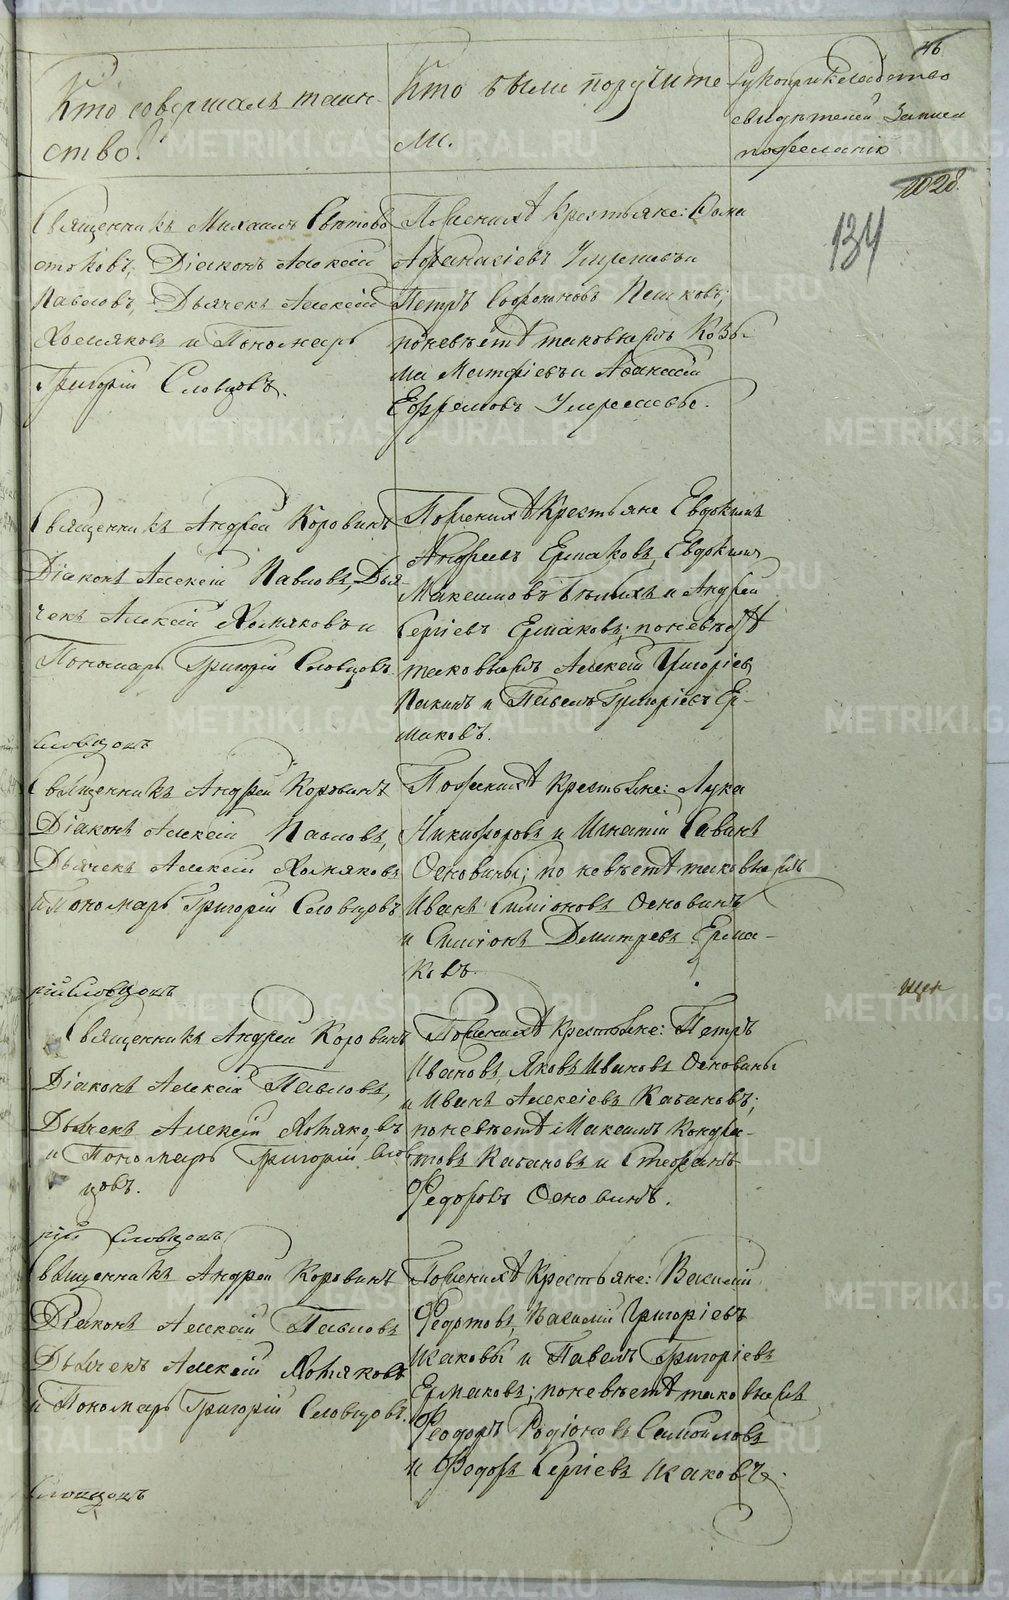 46
Кто совершалъ таин-
ство.
Кто были поручите
ли.
Рукоприкладство
свидѣтелей записи
по желанію
1028.
134
Священникъ Михаилъ
Діаконъ Алексій
Павловъ, Дьячекъ Алексій
Хомяковъ и Пономарь
Григорій Словцовъ.
По женихѣ крестьяне:
Петръ Софроновъ Пешковъ;
по невѣстѣ таковыежъ Козь-
ма
Священникъ Андрей Коровинъ
Діаконъ Алексій Павловъ, Дья-
чекъ Алексій Хомяковъ и
Пономарь Григорій Словцовъ.
По женихѣ Крестьяне Евдокимъ
Андреевъ Ермаковъ, Евдокимъ
и Андрей
Сергіевъ Ермаковъ; по невѣстѣ
таковыежъ Алексей Григоріевъ
и Павелъ Григоріевъ Ер-
маковъ.
Словцовъ
Священникъ Андрей Коровинъ
Діаконъ Алексій Павловъ,
Дьячекъ Алексій Хомяковъ
и Пономарь Григорій Словцовъ
По женихѣ крестьяне: Лука
Никифоровъ и Игнатій Савинъ
Основины; по невѣстѣ таковыежъ
Иванъ Симіоновъ Основинъ
и Симіонъ Дмитревъ Ерма-
ковъ.
рій Словцовъ
Священникъ Андрей Коровинъ
Діаконъ Алексій Павловъ,
Дьячекъ Алексій Хомяковъ
и Пономарь Григорій Слов
цовъ.
По женихѣ крестьяне: Петръ
Ивановъ, Яковъ Ивановъ Основины
и Иванъ Алексіевъ Кабановъ;
по невѣстѣ Максимъ Кондра-
товъ Кабановъ и Стефанъ
Федоровъ Основинъ.
рій Словцовъ
Священникъ Андрей Коровинъ
Діаконъ Алексій Павловъ
Дьячекъ Алексій Хомяковъ
и Пономарь Григорій Словцовъ.
По женихѣ Крестьяне: Василій
Федотовъ, Василій Григоріевъ
Исаковы и Павелъ Григоріевъ
Ермаковъ; по невѣстѣ таковыежъ
Феодоръ Родіоновъ Самойловъ
и Федоръ Сергіевъ Исаковъ.
Словцовъ
METRIKI.GASO-URAL.RU